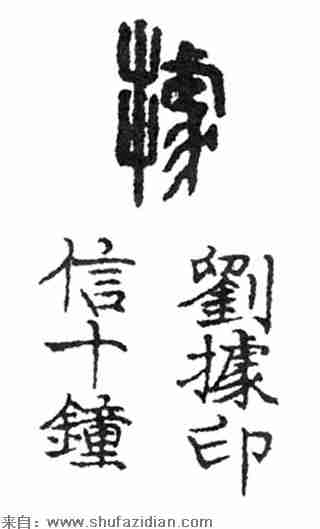 據
劉據印
信十鐘
来自：www.shufazidian.com